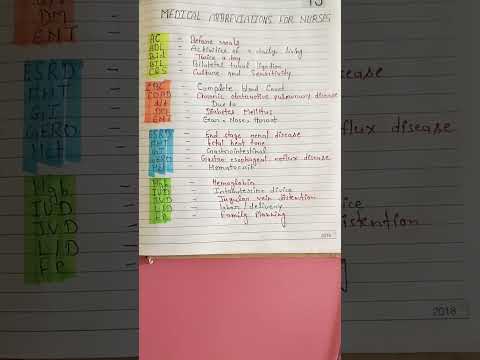 MEDICAL ABBREVIATIONS FOR NURSES
AC - Before meals
ADL - Activities of a daily living
Bid - Twice a day
BTL - Bilateral tubal ligation
C&S - Culture and Sensitivity
CBC - Complete blood Count
COPD - Chronic obstructive pulmonary disease
d/t - Due to
DM - Diabetes Mellitus
ENT - Ear, Nose, throat
ESRD - End stage renal disease
FHT - Fetal heat tone
GI - Gastrointestinal
GERD - Gastro esophageal reflux disease
Hct - Hematocrit
Hgb - Hemoglobin
IUD - Intrauterine divice
JVD - Jugular vein distention
L/D - Labor / delivery
FP - Family Planning
2018
DM
ENT
ESRD
FHT
GI
GERD
Hct
Hgb
IUD
JVD
L/D
FP
disease
flux disease
distention
2018